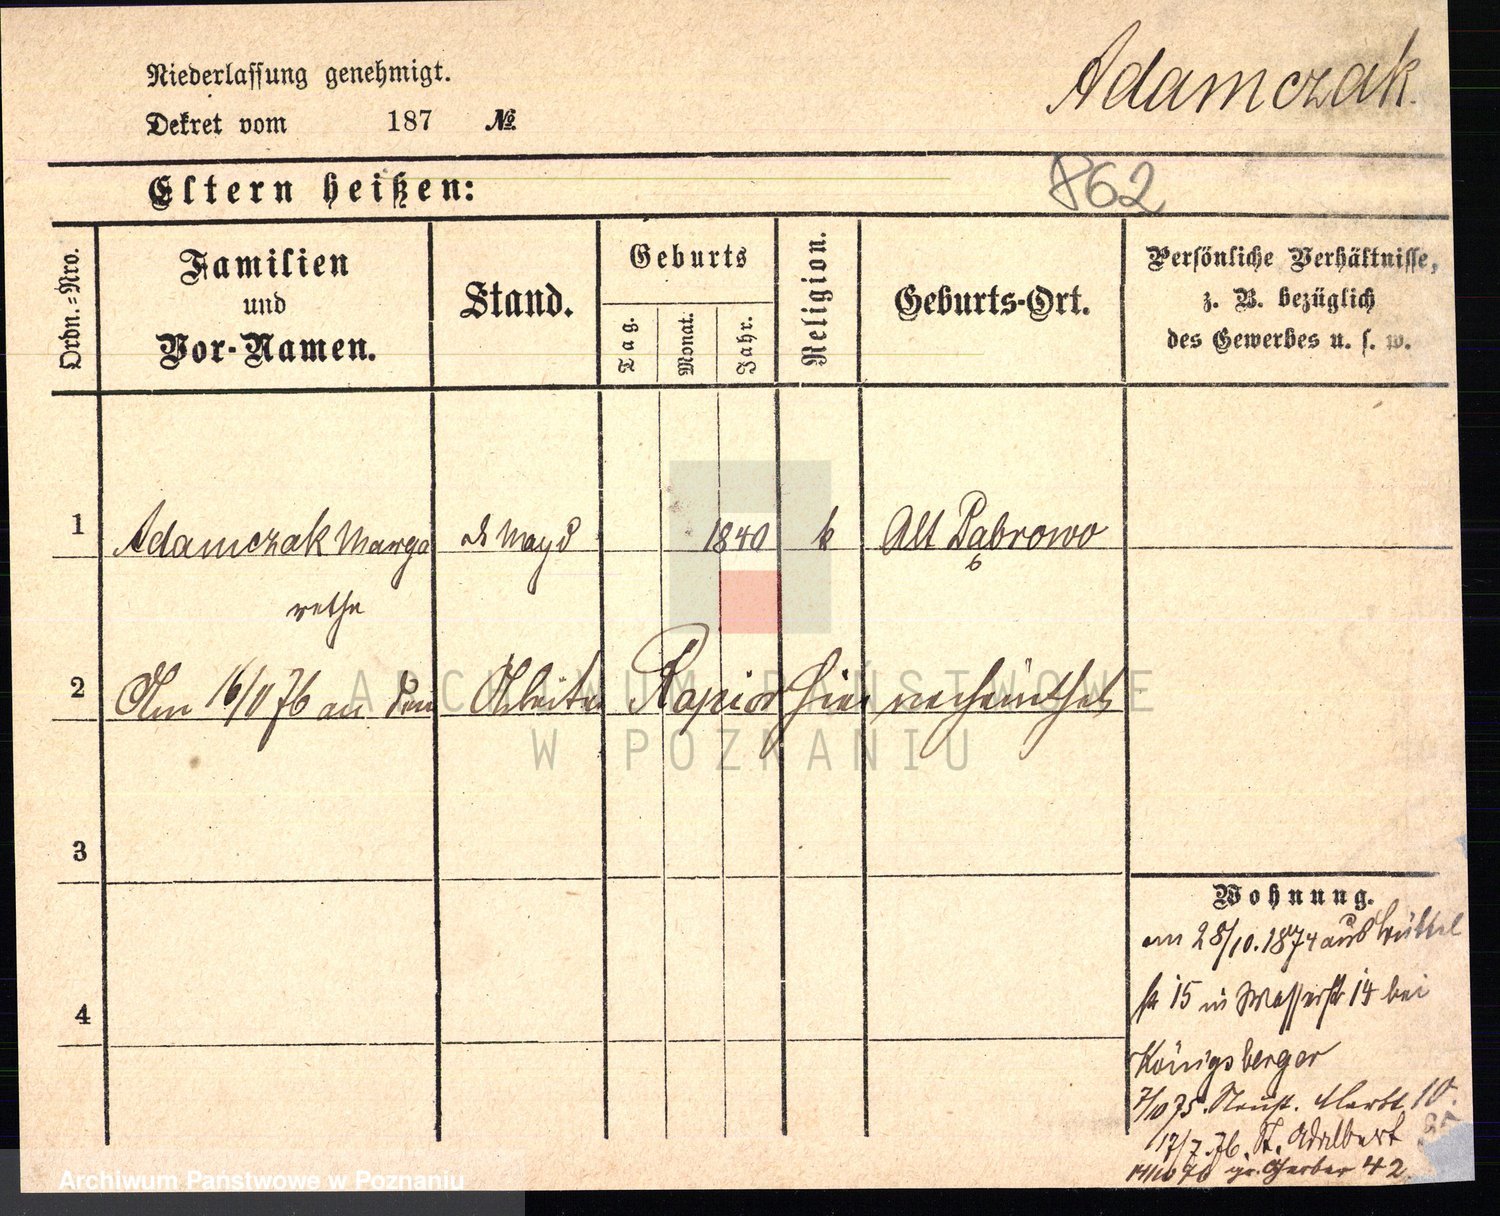 Niederlassung genehmigt.
Adamczak.
Dekret vom 187 №
Eltern heißen:
862
Ordn.=Nro.
Familien
und
Vor-Namen.
Stand.
Geburts
Tag.
Monat.
Jahr.
Religion.
Geburts-Ort.
Persönliche Verhältnisse,
z. B. bezüglich
des Gewerbes u. s. w.
1 Adamczak Marga d. Magd 1840 k Alt Dąbrowo
rethe
2 Am 16/11 76 an den Arbeiter Rapior hier verheirathet
ARCHIWUM PAŃSTWOWE
W POZNANIU
3
Wohnung.
am 28/10.1874 aus Büttel
str 15 in Wasserstr 14 bei
4
Königsberger
7/10 75. Neust. Markt 10.
17/7.76. St. Adalbert
14/10 76 gr. Gerber 42.
Archiwum Państwowe w Poznaniu